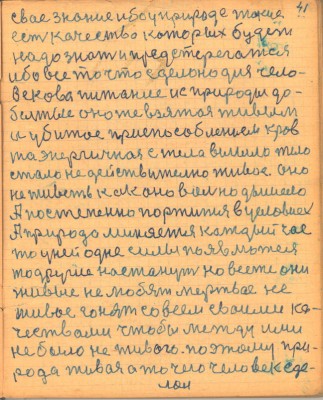 41
свае знание ибо у природе такие
есть качества которых будет
надо знат и предстерегатся
ибо все то что зделоно для чело-
века питание ис природы до-
бытые оно те взятоя живьям
и убитое приспособлением кров
та энергичная с тела вылило тело
стало не действително живое оно
не живеть как оно волно движело
А постепенно портится в условиях
А природа миняется каждый час
то у ней одне силы появляются
то другие настанут но все те они
живые не любят мертвае не
живое гонят со всем своими ка-
чествами чтобы между ими
не было не живого. поэтому при-
рода живая а то чего человек сде-
лан